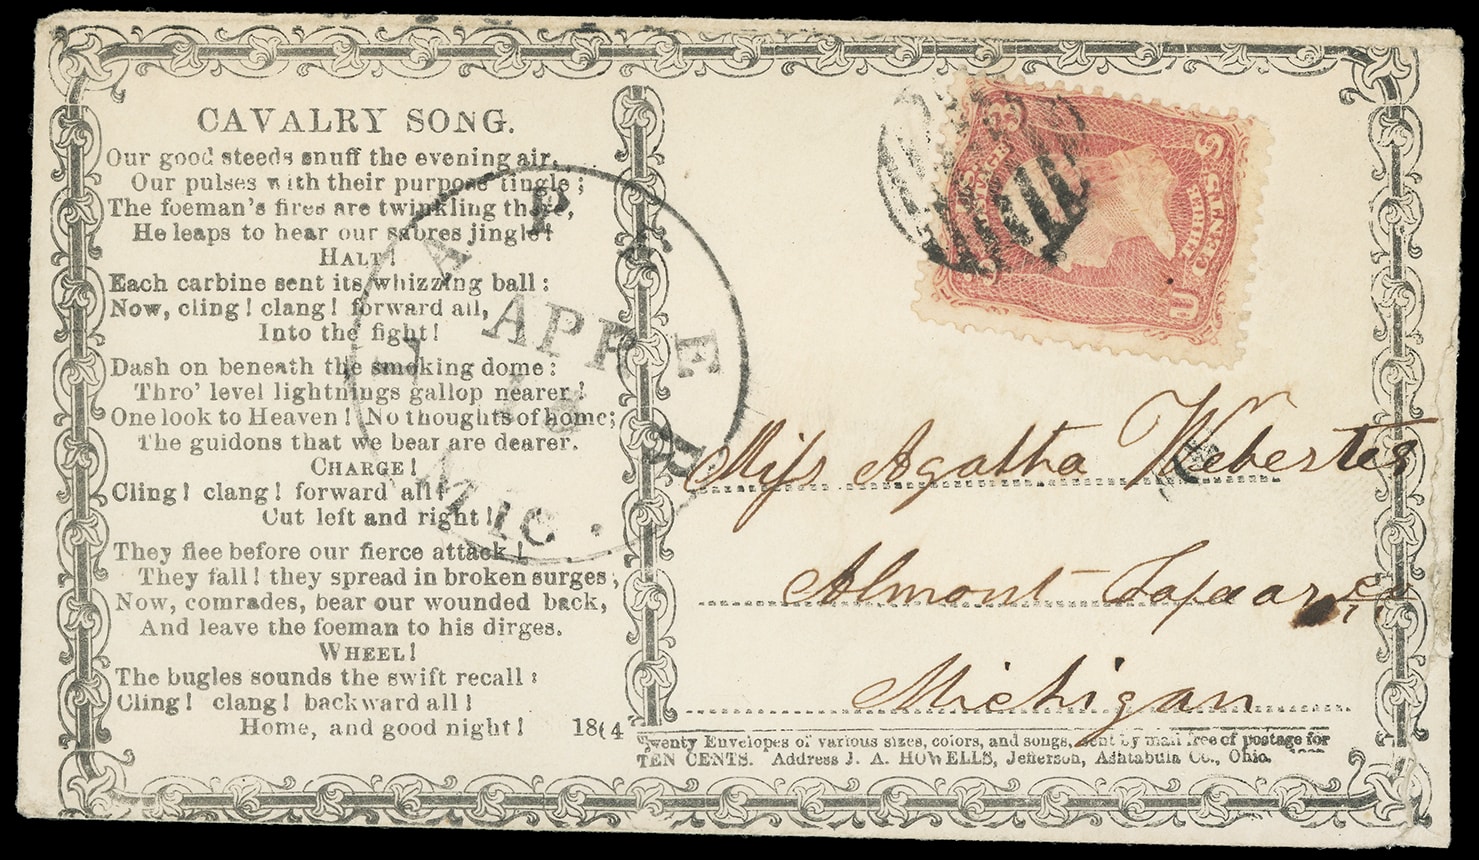 CAVALRY SONG.
Our good steeds snuff the evening air,
Our pulses with their purpose tingle;
The foeman's fires are twinkling there,
He leaps to hear our sabres jingle!
HALT!
Each carbine sent its whizzing ball:
Now, cling! clang! forward all,
Into the fight!
Dash on beneath the smoking dome:
Thro' level lightnings gallop nearer!
One look to Heaven! No thoughts of home;
The guidons that we bear are dearer.
CHARGE!
Cling! clang! forward all!
Cut left and right!
They flee before our fierce attack!
They fall! they spread in broken surges;
Now, comrades, bear our wounded back,
And leave the foeman to his dirges.
WHEEL!
The bugles sounds the swift recall:
Cling! clang! backward all!
Home, and good night!
1864
LAPEER
APR
MIC.
U.S. POSTAGE
3
U
S
THREE CENTS
Miss Agatha
Almont Lapeer Co
Michigan
Twenty Envelopes of various sizes, colors, and songs, sent by mail free of postage for
TEN CENTS. Address J. A. HOWELLS, Jefferson, Ashtabula Co., Ohio.